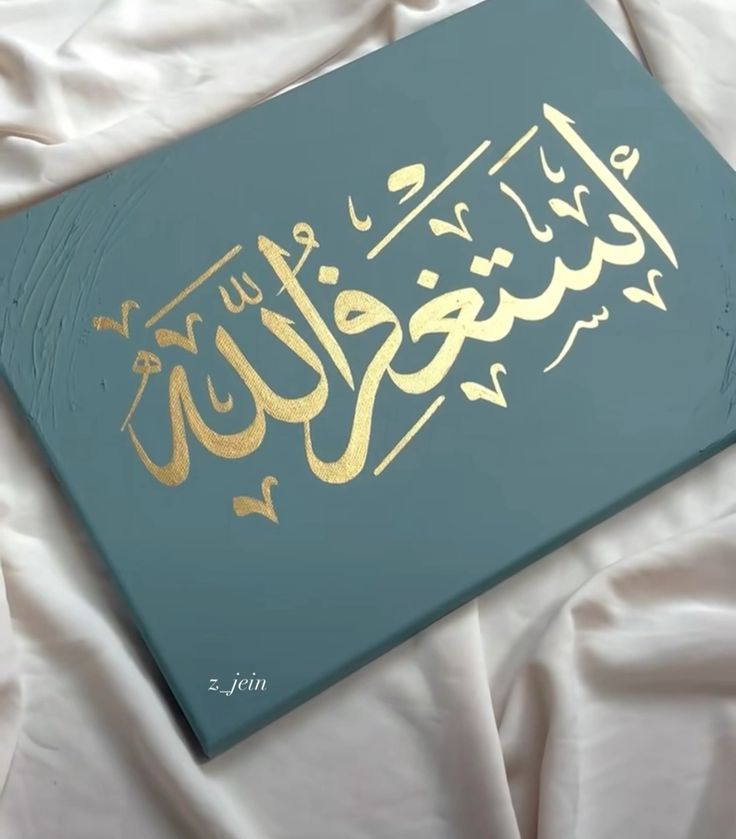 أستغفر الله
z_jein